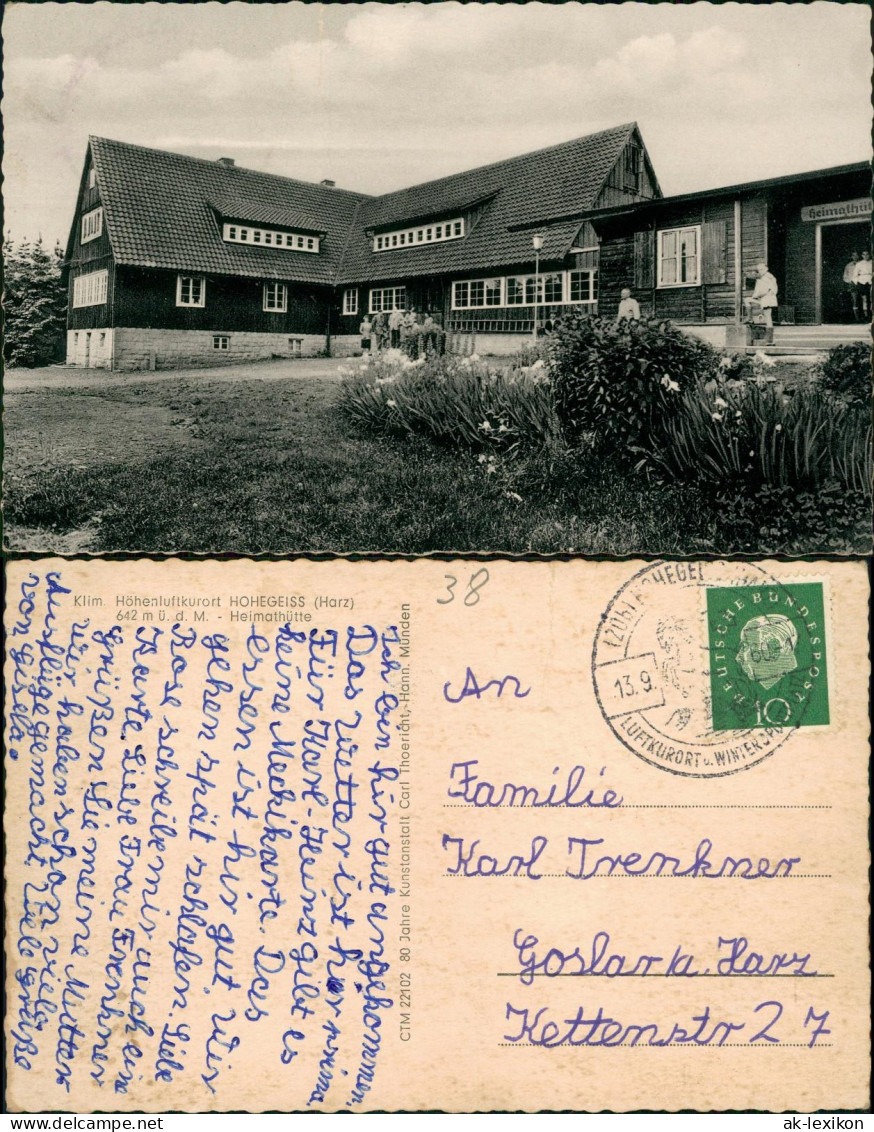 Heimathütte
Klim. Höhenluftkurort HOHEGEISS (Harz)
642 m ü. d. M. - Heimathütte
38
CTM 22102 80 Jahre Kunstanstalt Carl Thoericht, Hann. Münden
Ich bin hir gut angekommen.
Das Wetter ist hir prima.
Für Karl-Heinz gibt es
keine Meckikarte. Das
Essen ist hir gut. Wir
gehen spät schlafen. Liebe
Rose schreibe mir auch eine
Karte. Liebe Frau Trenkner
grüßen Sie meine Mutter
Wir haben schon viele
Ausflüge gemacht. Viele Grüße
von Gisela.
(20b) HOHEGEI
13.9.
60
LUFTKURORT u. WINTERSPO
DEUTSCHE BUNDESPOST
10
An
Familie
Karl Trenkner
Goslar a. Harz
Kettenstr 27
ak-lexikon